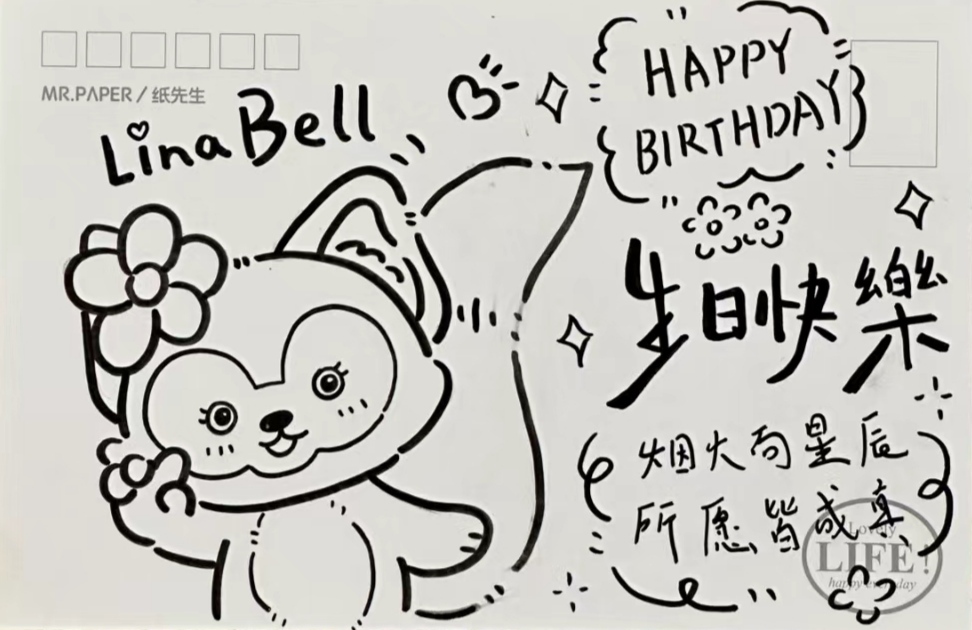 MR.PAPER / 纸先生
LinaBell
HAPPY
BIRTHDAY
生日快樂
烟火向星辰
所愿皆成真
Lovely
LIFE!
happy everyday